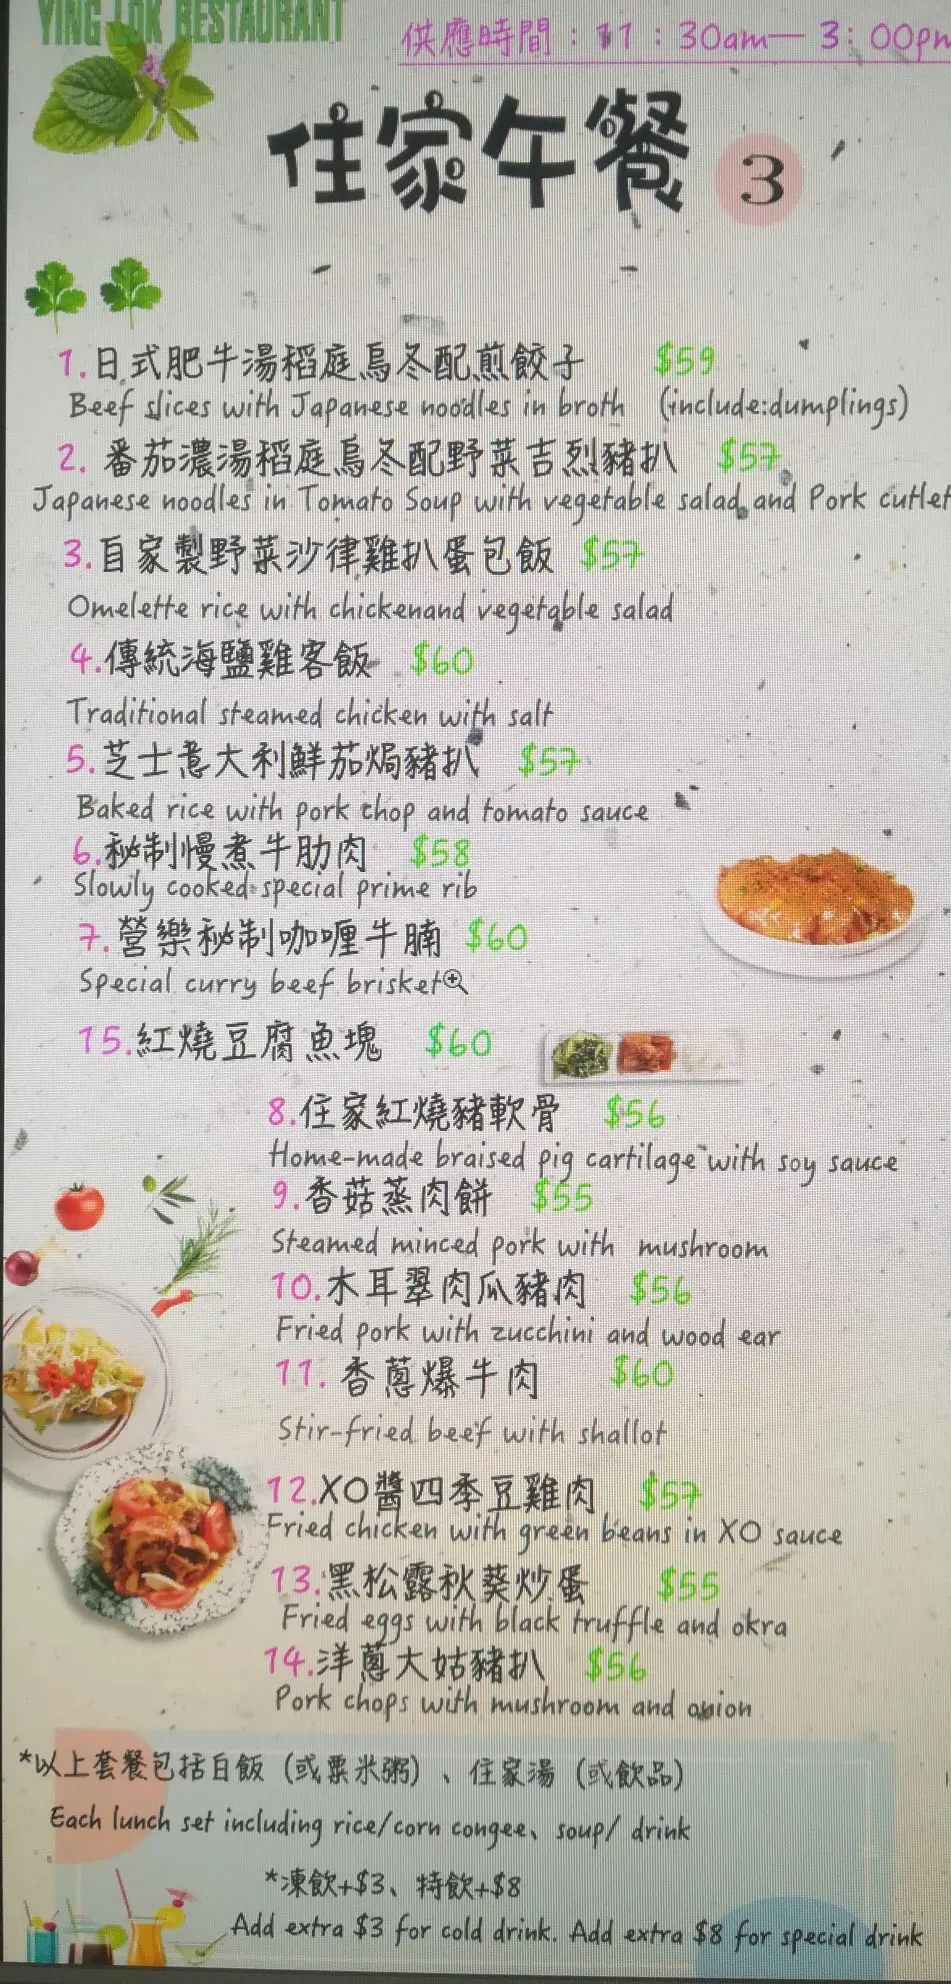 YING LOK RESTAURANT
供應時間：11：30am— 3：00pm
住家午餐 3
1.日式肥牛湯稻庭烏冬配煎餃子 $59
Beef slices with Japanese noodles in broth (include:dumplings)
2. 番茄濃湯稻庭烏冬配野菜吉烈豬扒 $57
Japanese noodles in Tomato Soup with vegetable salad and Pork cutlet
3.自家製野菜沙律雞扒蛋包飯 $57
Omelette rice with chickenand vegetable salad
4.傳統海鹽雞客飯 $60
Traditional steamed chicken with salt
5.芝士意大利鮮茄焗豬扒 $57
Baked rice with pork chop and tomato sauce
6.秘制慢煮牛肋肉 $58
Slowly cooked special prime rib
7.營樂秘制咖喱牛腩 $60
Special curry beef brisket
15.紅燒豆腐魚塊 $60
8.住家紅燒豬軟骨 $56
Home-made braised pig cartilage with soy sauce
9.香菇蒸肉餅 $55
Steamed minced pork with mushroom
10.木耳翠肉瓜豬肉 $56
Fried pork with zucchini and wood ear
11. 香蔥爆牛肉 $60
Stir-fried beef with shallot
12.XO醬四季豆雞肉 $57
Fried chicken with green beans in XO sauce
13.黑松露秋葵炒蛋 $55
Fried eggs with black truffle and okra
14.洋蔥大姑豬扒 $56
Pork chops with mushroom and onion
*以上套餐包括白飯（或粟米粥）、住家湯（或飲品）
Each lunch set including rice/corn congee、soup/ drink
*凍飲+$3、特飲+$8
Add extra $3 for cold drink. Add extra $8 for special drink